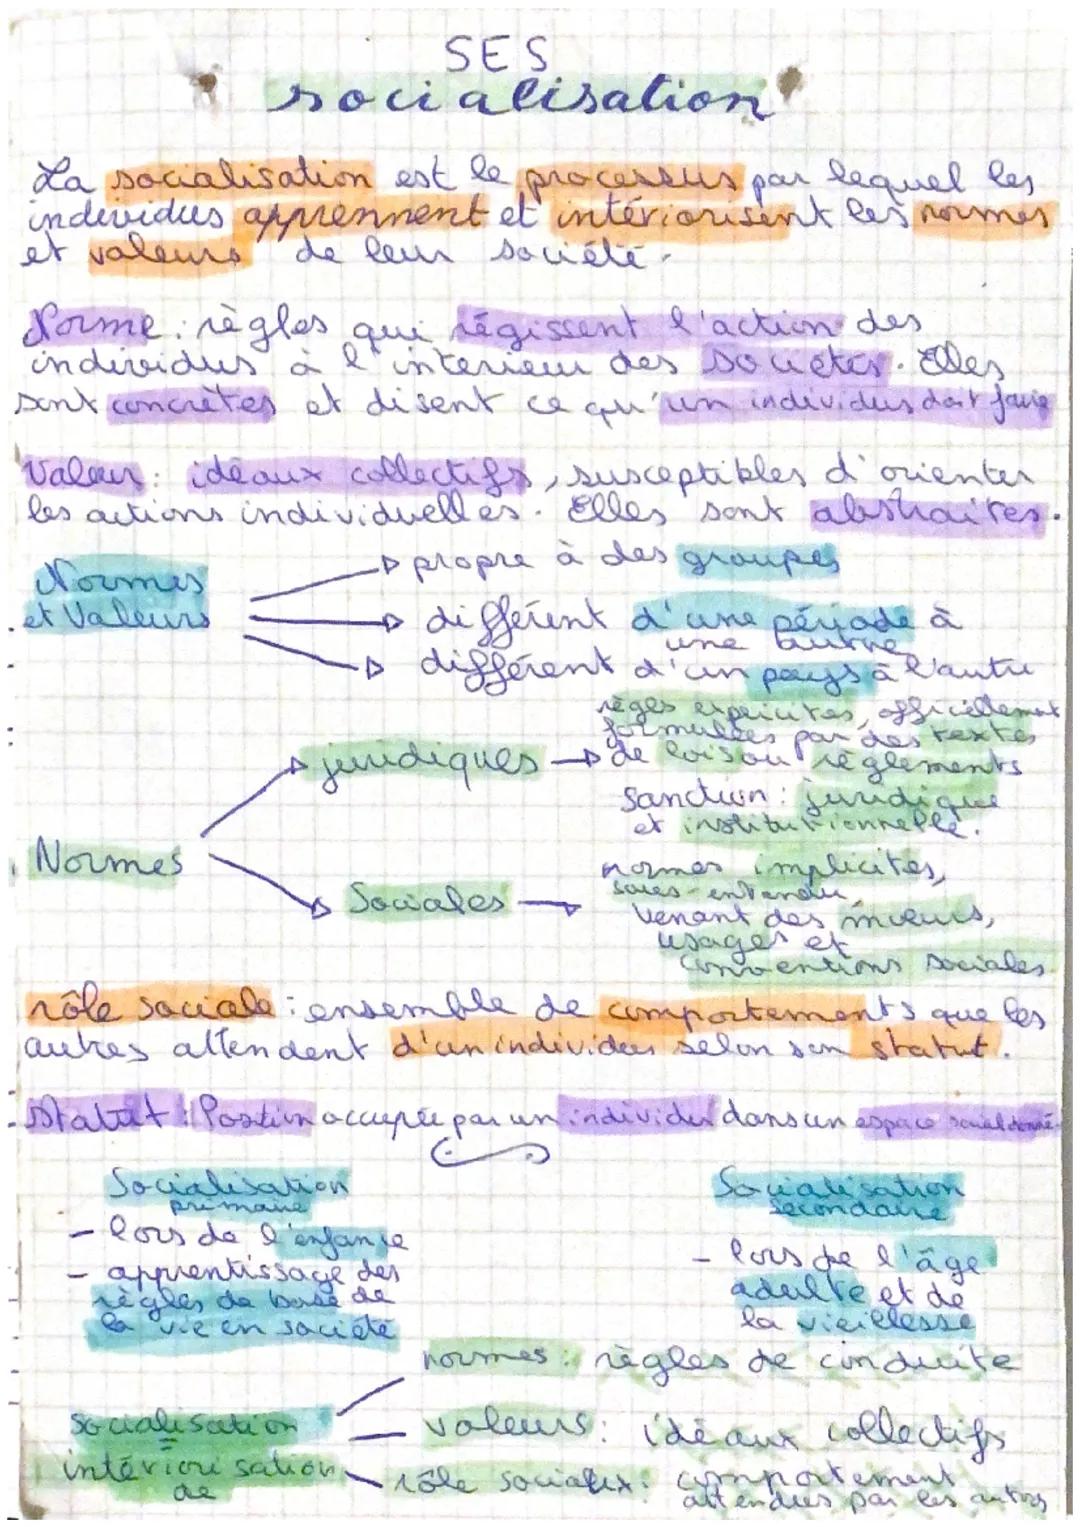 SES
socialisation
La socialisation est le processus par lequel les
individus apprennent et intériorisent les normes
et valeurs de leur société.
Norme : règles qui régissent l'action des
individus à l'interieur des sociétés. Elles
sont concrètes et disent ce qu'un individus doit faire
Valeur : idéaux collectifs, susceptibles d'orienter
les actions individuelles. Elles sont abstraites.
Normes
et Valeurs
propre à des groupes
différent d'une période à
une autre
différent d'un pays à l'autre
Normes
juridiques
règes explicites, officiellement
formulées par des textes
de lois ou règlements
sanction : juridique
et institutionnelle.
Sociales
normes implicites,
sous-entendu,
venant des mœurs,
usages et
conventions sociales
rôle sociale : ensemble de comportements que les
autres attendent d'un individu selon son statut.
Statut : Position occupée par un individu dans un espace social donné.
Socialisation
primaire
- lors de l'enfance
- apprentissage des
règles de base de
la vie en société
Socialisation
secondaire
- lors de l'âge
adulte et de
la vieillesse
socialisation
=
intériorisation
de
normes : règles de conduite
valeurs : idéaux collectifs
rôle sociaux : comportement
attendus par les autres